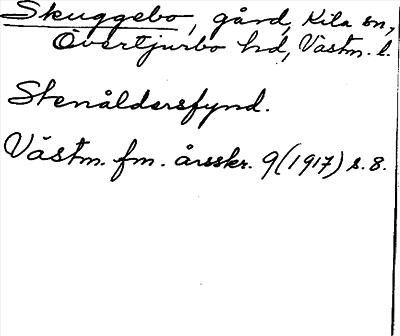 Skuggebo, gård, Kila sn,
Övertjurbo hd, Västm. l.
Stenåldersfynd.
Västm. fm. årsskr. 9(1917) s. 8.